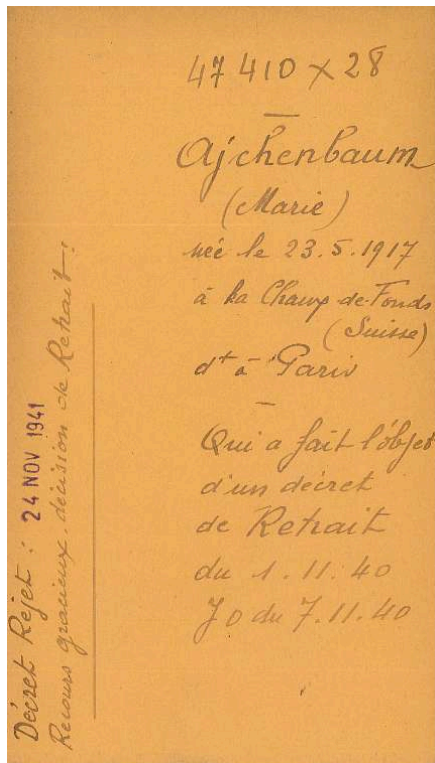 47 410 x 28
Ajchenbaum
(Marie)
née le 23.5.1917
à La Chaux-de-Fonds
(Suisse)
dt à Paris
Qui a fait l'objet
d'un décret
de Retrait
du 1.11.40
JO du 7.11.40
Décret Rejet : 24 NOV 1941
Recours gracieux décision de Retrait :